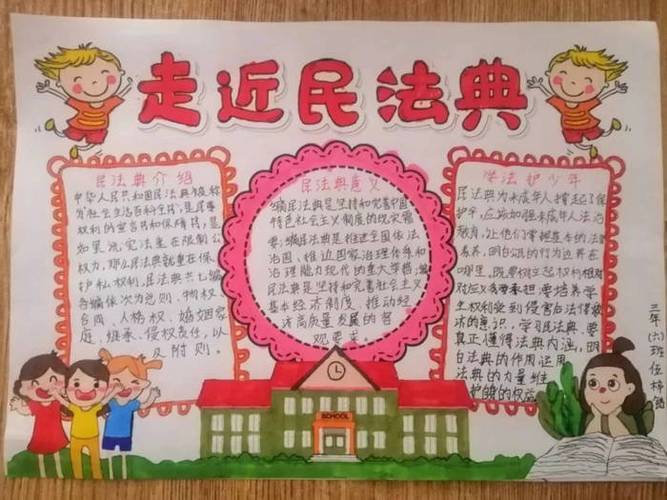 走近民法典
民法典介绍
中华人民共和国民法典被称
为"社会生活百科全书",是民事
权利的宣告书和保障书,是
如果说宪法重在限制公
权力,那么民法典就重在保
护私权利,民法典共七编
各编依次为总则、物权、
合同、人格权、婚姻家
庭、继承、侵权责任,以
及附则。
民法典意义
编民法典是坚持和完善中国
特色社会主义制度的现实需
要;编民法典是推进全国依法
治国、推进国家治理体系和
治理能力现代的重大举措;编
民法典是坚持和完善社会主义
基本经济制度、推动经
济高质量发展的客
观要求。
学法护少年
民法典为未成年人撑起了保
护伞,应当加强未成年人法治
教育,让他们掌握基本的法
素养,明白己的行为边界在
哪里,既要树立起权利相对
对应义务要承担要培养学
生权利受到侵害后法律救
济的意识,学习民法典、要
真正懂得法典内涵,明
白法典的作用运用
法典的力量维
护的权益
SCHOOL
三年(六)班伍梓